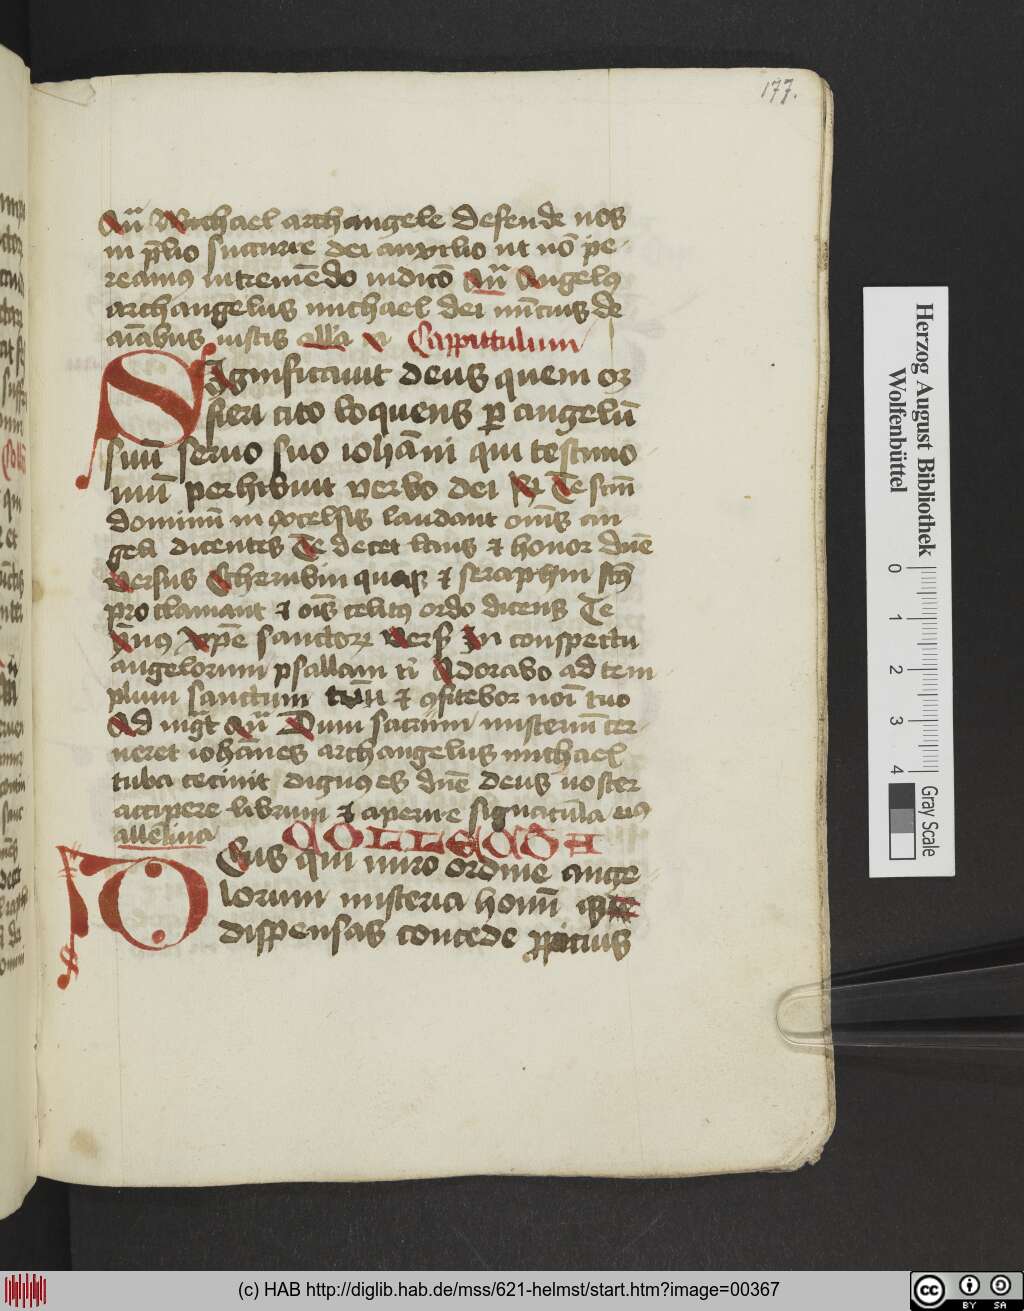 177.
Añ Michael archangele defende nos
in p̄lio succurre dei auxilio ut nō pe-
reamus in tremēdo iudicō Añ Angelus
archangelus michael dei nūcius de
aīabus iustis alla v Cappittulum
Significauit deus quem op
fieri cito loquens p angelū
suū seruo suo iohāni qui testimo
niū perhibuit verbo dei R Te scm̄
dominū in excelsis laudant om̄s an
geli dicentes Te decet laus et honor dn̄e
Versus Cherubin quoqꝫ et seraphin scū
proclamant et oīs celicus ordo dicens Te
ympnus Xpē sanctorꝝ Vers In conspectu
angelorum psallam ti Adorabo ad tem
plum sanctum tuū et ꝯfitebor noī tuo
Ad mgt Añ Dum sacrum misteriū cer-
neret iohānes archangelus michael
tuba cecinit dignus es dn̄e deus noster
accipere librum et aperire signacula eius
alleluia COLLECTA
Deus qui miro ordine ange-
lorum misteria homīū qꝫ
dispensas concede ꝓpicius
Herzog August Bibliothek
Wolfenbüttel
0 1 2 3 4
Gray Scale
(c) HAB http://diglib.hab.de/mss/621-helmst/start.htm?image=00367
cc BY SA